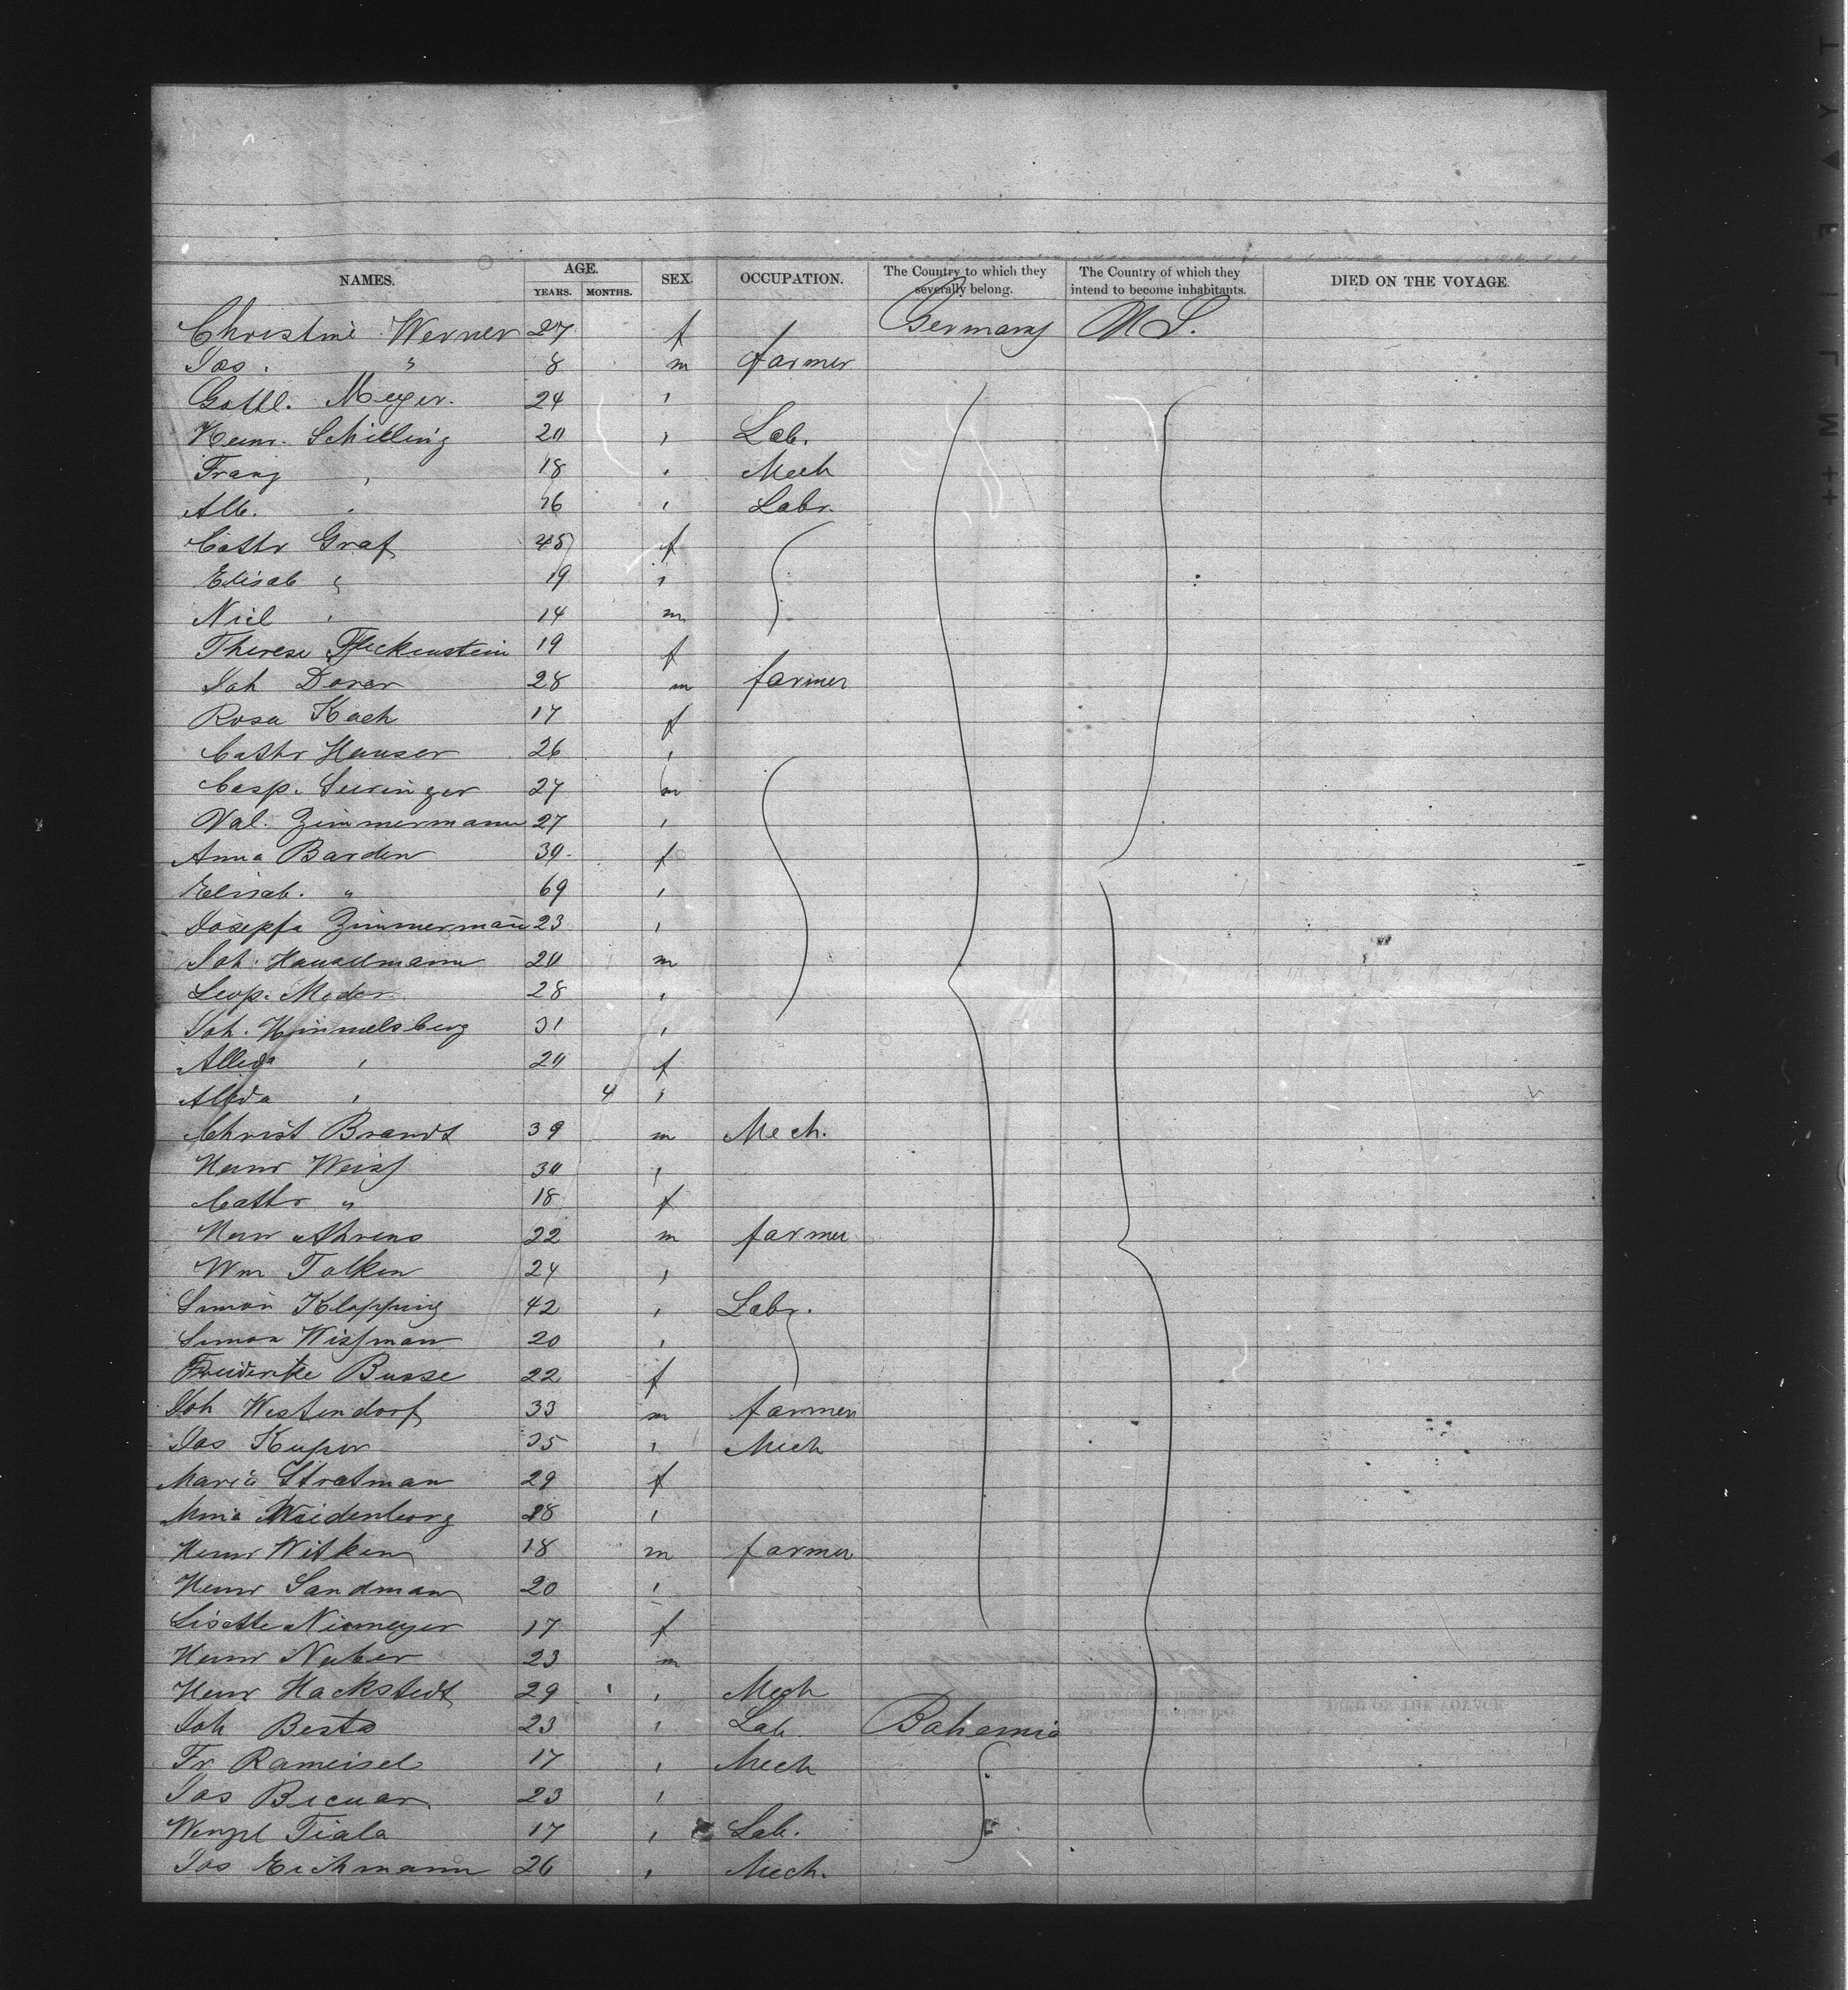 NAMES. AGE. SEX. OCCUPATION. The Country to which they severally belong. The Country of which they intend to become inhabitants. DIED ON THE VOYAGE.
YEARS. MONTHS.
Christine Werner 27 f Germany U S.
Jos. " 8 m farmer
Gottl. Meyer. 24 "
Heinr. Schilling 20 " Lab.
Franz " 18 " Mech
Alb. " 16 " Labr.
Cathr Graf 45 f
Elisab " 19 "
Nicl " 14 m
Therese Fleckenstein 19 f
Joh Dorer 28 m farmer
Rosa Koch 17 f
Cathr Hauser 26 "
Casp. Seiringer 27 m
Val. Zimmermann 27 "
Anna Barden 30 f
Elisab. " 69 "
Josepfa Zimmermann 23 "
Joh. Hauselmann 20 m
Leop. Moder 28 "
Joh. Himmelsberg 31 "
Alleda " 20 f
Alleda " 4 "
Christ Brandt 39 m Mech.
Heinr Weiss 30 "
Cathr " 18 f
Heinr Ahrens 22 m farmer
Wm Tolken 24 "
Simon Klopping 42 " Labr.
Simon Wissman 20 "
Friederike Busse 22 f
Joh Westendorf 33 m farmer
Jos Kuper 35 " Mech
Maria Stratman 29 f
Anna Weidenberg 28 "
Heinr Witken 18 m farmer
Heinr Sandman 20 "
Lisette Niemeyer 17 f
Heinr Naber 23 m
Heinr Hackstedt 29 " Mech
Joh Besta 23 " Lab Bohemia
Fr Rameisel 17 " Mech
Jos 23 "
Wenzl Fiala 17 " Lab.
Jos Eichmann 26 " Mech.